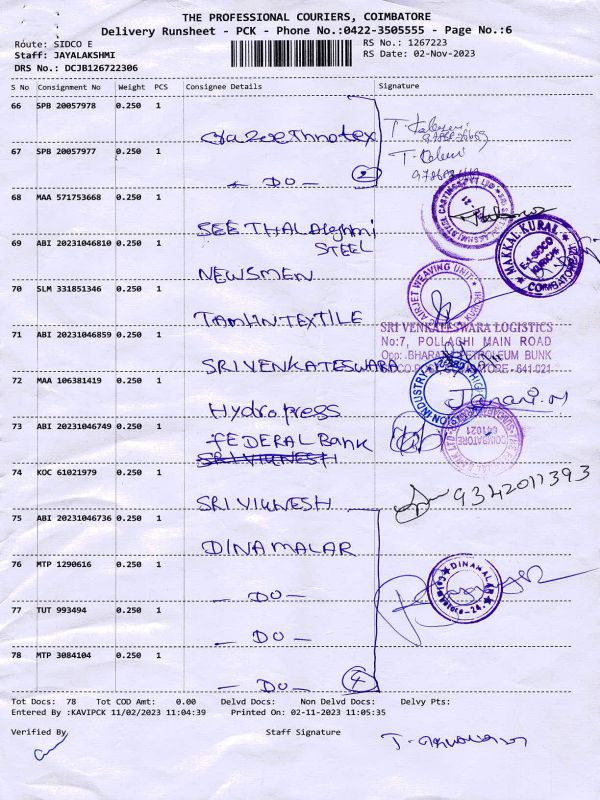 THE PROFESSIONAL COURIERS, COIMBATORE
Delivery Runsheet - PCK - Phone No.:0422-3505555 - Page No.:6
Route: SIDCO E
Staff: JAYALAKSHMI
DRS No.: DCJB126722306
RS No.: 1267223
RS Date: 02-Nov-2023
S No Consignment No Weight PCS Consignee Details Signature
66 SPB 20057978 0.250 1
67 SPB 20057977 0.250 1
- DO - 2
68 MAA 571753668 0.250 1
SEETHALAkshmi
STEEL
69 ABI 20231046810 0.250 1
NEWSMEN
MAKKAL KURAL
E-1, SIDCO
COIMBATORE
70 SLM 331851346 0.250 1
TAMLINTEXTILE
AIRJET WEAVING UNIT
71 ABI 20231046859 0.250 1
SRIVENKATESWARA
SRI VENKATESWARA LOGISTICS
No:7, POLLACHI MAIN ROAD
Opp: BHARAT PETROLEUM BUNK
72 MAA 106381419 0.250 1
Hydropress
Janani.M
73 ABI 20231046749 0.250 1
FEDERAL Bank
SRIVIGNESH
COIMBATORE
641021
74 KOC 61021979 0.250 1
SRIVIGNESH
9342011393
75 ABI 20231046736 0.250 1
DINAMALAR
76 MTP 1290616 0.250 1
- DO -
DINAMALAR
Coimbatore-24.
77 TUT 993494 0.250 1
- DO -
78 MTP 3084104 0.250 1
- DO - 4
Tot Docs: 78 Tot COD Amt: 0.00 Delvd Docs: Non Delvd Docs: Delvy Pts:
Entered By :KAVIPCK 11/02/2023 11:04:39 Printed On: 02-11-2023 11:05:35
Verified By Staff Signature